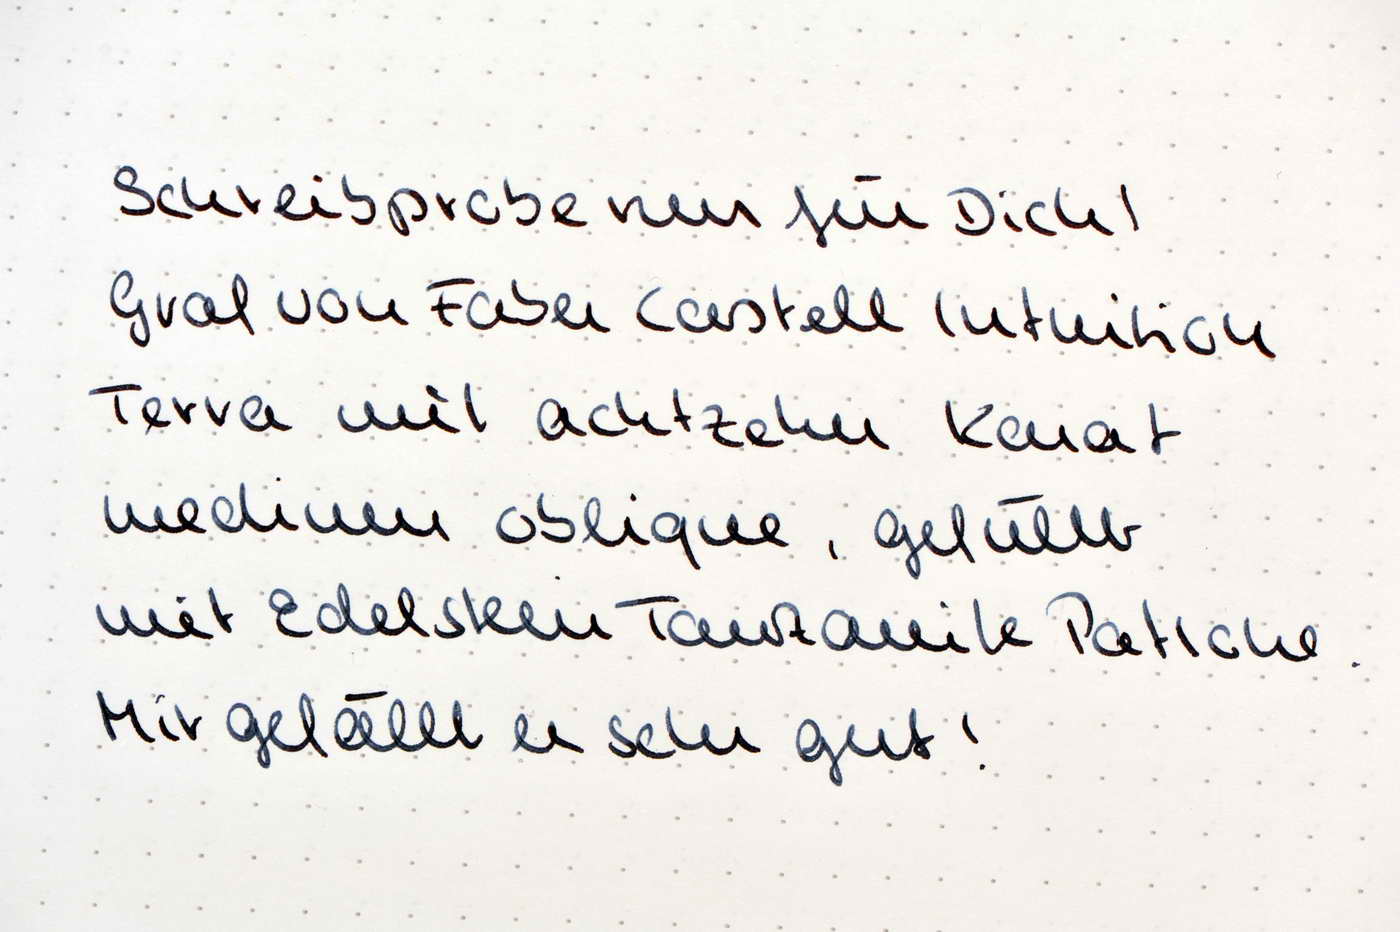 Schreibprobe nur für Dich!
Graf von Faber Castell Intuition
Terra mit achtzehn Karat
medium oblique, gefüllt
mit Edelstein Tanzanite Patrone.
Mir gefällt er sehr gut!